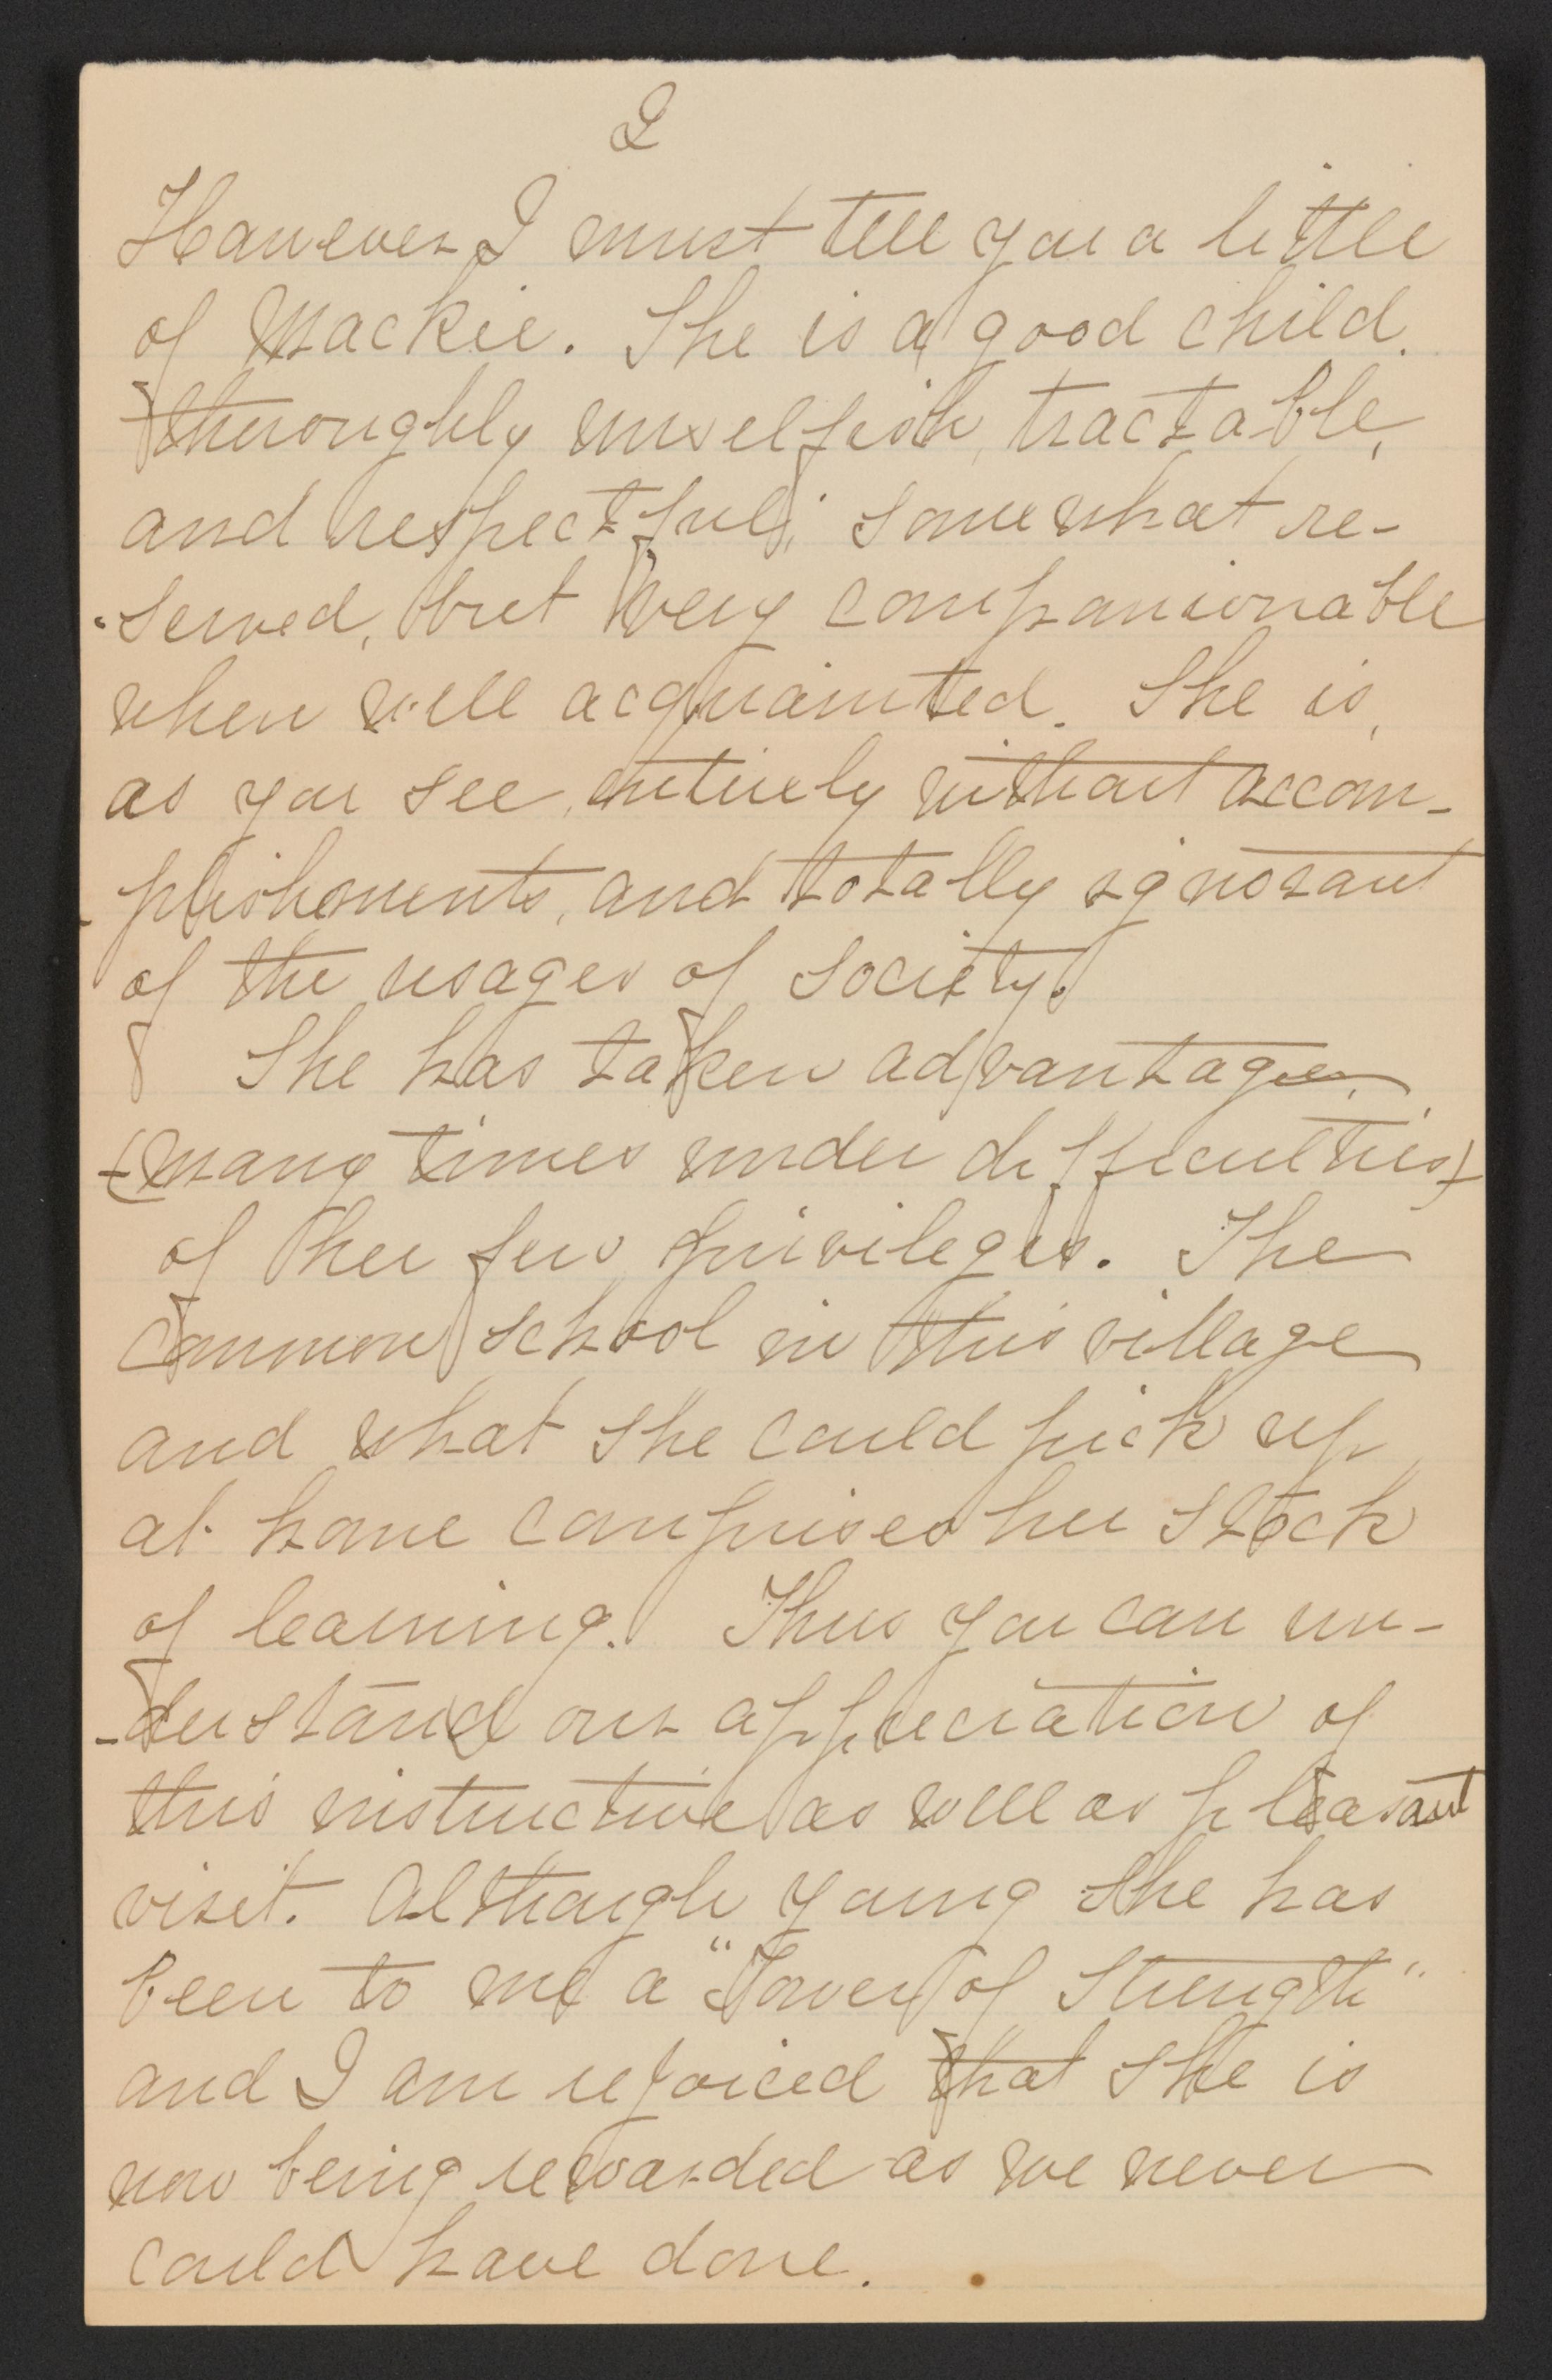 2
However I must tell you a little
of Mackie. She is a good child.
thoroughly unselfish, tractable,
and respectful; somewhat re-
-served, but very companionable
when well acquainted. She is,
as you see, entirely without accom-
-plishments, and totally ignorant
of the usages of society.
She has taken advantage,
(many times under difficulties)
of her few privileges. The
common school in this village
and what she could pick up
at home comprises her stock
of learning. Thus you can un-
-derstand our appreciation of
this instructive as well as pleasant
visit. Although young she has
been to me a "Tower of Strength"
and I am rejoiced that she is
now being rewarded as we never
could have done.